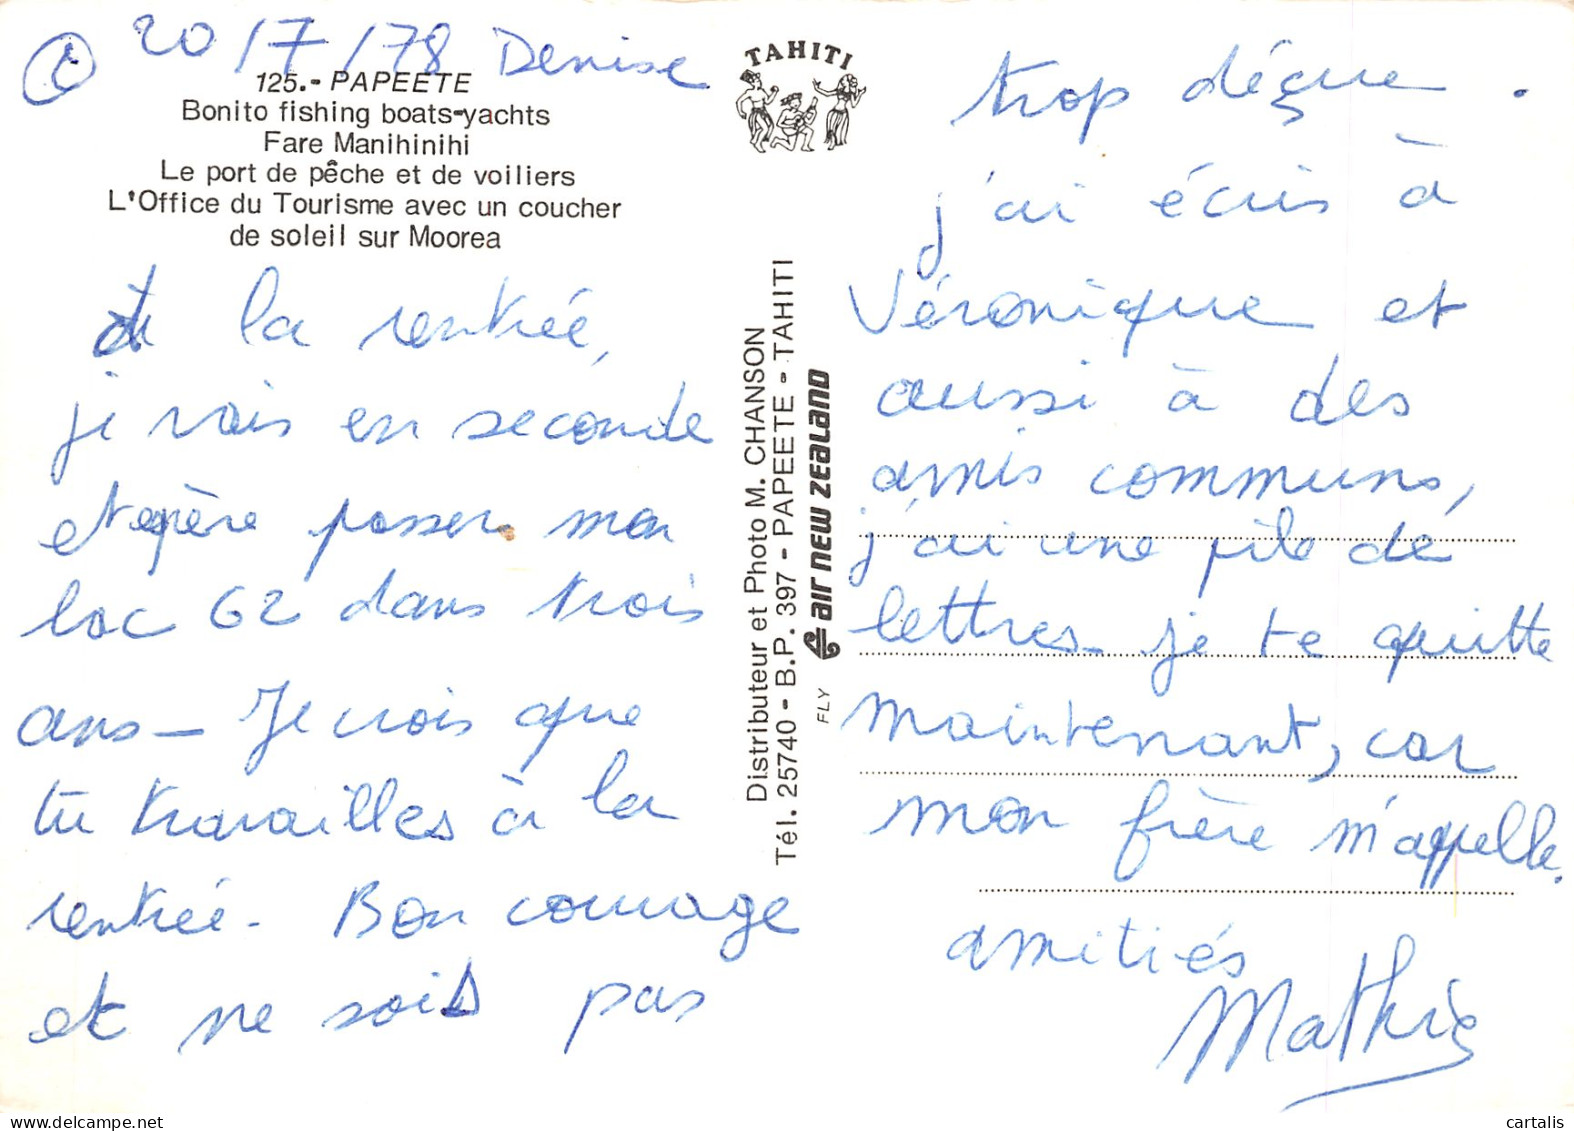 20/7/78 Denise
125.- PAPEETE
Bonito fishing boats-yachts
Fare Manihinihi
Le port de pêche et de voiliers
L'Office du Tourisme avec un coucher
de soleil sur Moorea
la rentrée,
je vais en seconde
et espère passer mon
bac G2 dans trois
ans - Je crois que
tu travailles à la
rentrée - Bon courage
et ne sois pas
TAHITI
Distributeur et Photo M. CHANSON
Tél. 25740 - B.P. 397 - PAPEETE - TAHITI
FLY air new zealand
trop déçue.
j'ai écris à
Véronique et
aussi à des
amis communs,
j'ai une pile de
lettres - je te quitte
maintenant, car
mon frère m'appelle.
amitiés
Mathie
cartalis
delcampe.net